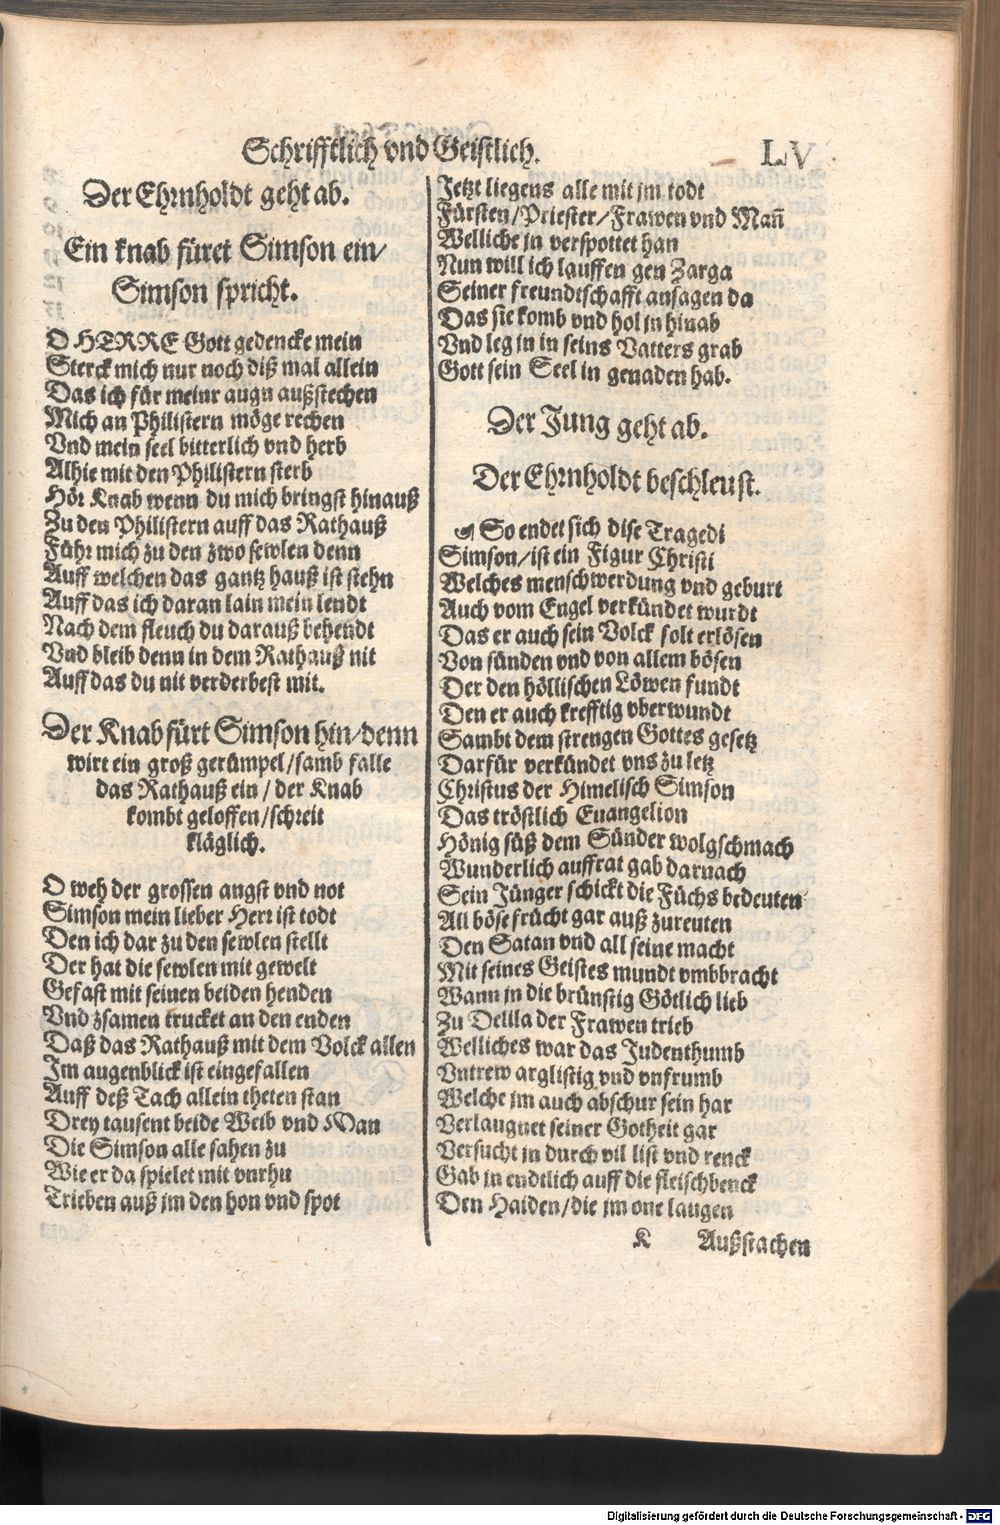 Schrifftlich vnd Geistlich.
LV
Der Ehrnholdt geht ab.
Ein knab füret Simson ein/
Simson spricht.
O HERRE Gott gedencke mein
Sterck mich nur noch diß mal allein
Das ich für meinr augn außstechen
Mich an Philistern möge rechen
Vnd mein seel bitterlich vnd herb
Alhie mit den Philistern sterb
Hör Knab wenn du mich bringst hinauß
Zu den Philistern auff das Rathauß
Führ mich zu den zwo sewlen denn
Auff welchen das gantz hauß ist stehn
Auff das ich daran lain mein lendt
Nach dem fleuch du darauß behendt
Vnd bleib denn in dem Rathauß nit
Auff das du nit verderbest mit.
Der Knab fürt Simson hin/denn
wirt ein groß gerümpel/samb falle
das Rathauß ein/der Knab
kombt geloffen/schreit
kläglich.
O weh der grossen angst vnd not
Simson mein lieber Herr ist todt
Den ich dar zu den sewlen stellt
Der hat die sewlen mit gewelt
Gefast mit seinen beiden henden
Vnd zsamen trucket an den enden
Daß das Rathauß mit dem Volck allen
Im augenblick ist eingefallen
Auff deß Tach allein theten stan
Drey tausent beide Weib vnd Man
Die Simson alle sahen zu
Wie er da spielet mit vnrhu
Trieben auß jm den hon vnd spot
Jetzt liegens alle mit jm todt
Fürsten/Priester/Frawen vnd Mañ
Welliche jn verspottet han
Nun will ich lauffen gen Zarga
Seiner freundtschafft ansagen da
Das sie komb vnd hol jn hinab
Vnd leg jn in seins Vatters grab
Gott sein Seel in genaden hab.
Der Jung geht ab.
Der Ehrnholdt beschleust.
☙ So endet sich dise Tragedi
Simson/ist ein Figur Christi
Welches menschwerdung vnd geburt
Auch vom Engel verkündet wurdt
Das er auch sein Volck solt erlösen
Von sünden vnd von allem bösen
Der den höllischen Löwen fundt
Den er auch krefftig vberwundt
Sambt dem strengen Gottes gesetz
Darfür verkündet vns zu letz
Christus der Himelisch Simson
Das tröstlich Euangelion
Hönig süß dem Sünder wolgschmach
Wunderlich auffrat gab darnach
Sein Jünger schickt die Füchs bedeuten
All böse frücht gar auß zureuten
Den Satan vnd all seine macht
Mit seines Geistes mundt vmbbracht
Wann jn die brünstig Götlich lieb
Zu Delila der Frawen trieb
Welliches war das Judenthumb
Vntrew arglistig vnd vnfrumb
Welche jm auch abschur sein har
Verlaugnet seiner Gotheit gar
Versucht jn durch vil list vnd renck
Gab jn endtlich auff die fleischbenck
Den Haiden/die jm one laugen
K
Außstachen
Digitalisierung gefördert durch die Deutsche Forschungsgemeinschaft - DFG